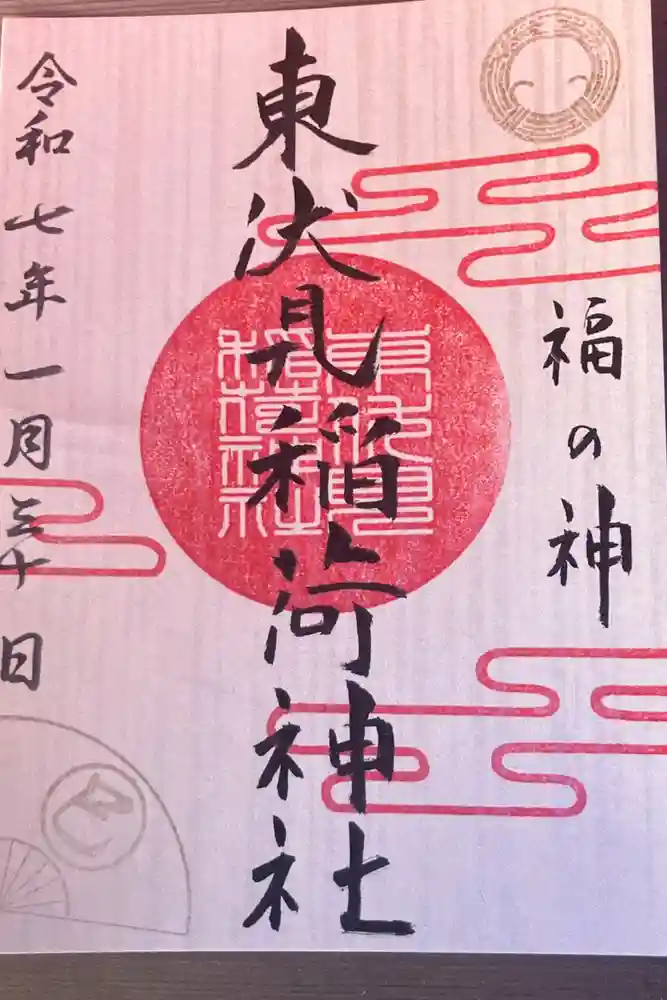 福の神
東伏見稲荷神社
東伏見
稲荷神社
令和七年一月三十日